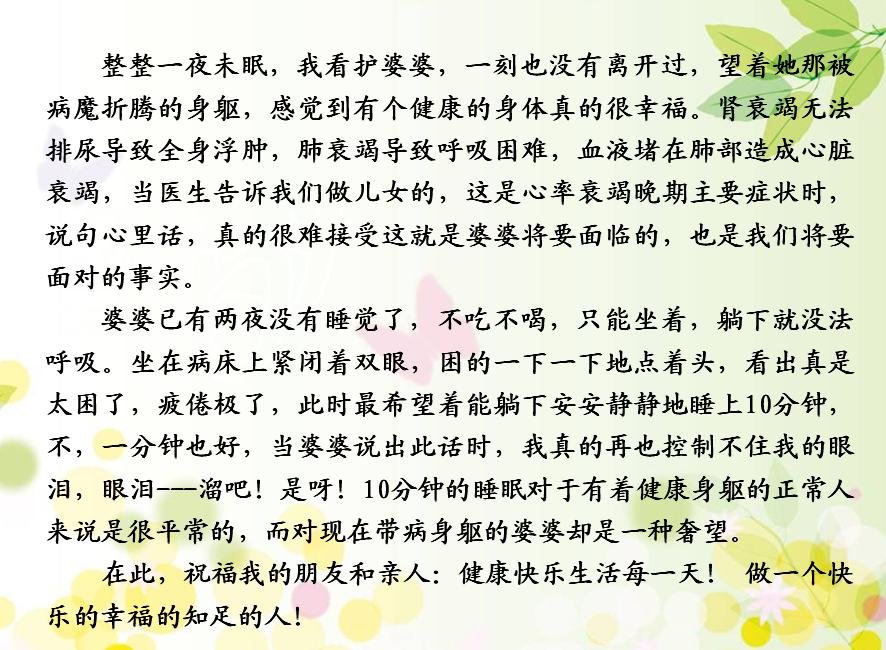 整整一夜未眠，我看护婆婆，一刻也没有离开过，望着她那被
病魔折腾的身躯，感觉到有个健康的身体真的很幸福。肾衰竭无法
排尿导致全身浮肿，肺衰竭导致呼吸困难，血液堵在肺部造成心脏
衰竭，当医生告诉我们做儿女的，这是心率衰竭晚期主要症状时，
说句心里话，真的很难接受这就是婆婆将要面临的，也是我们将要
面对的事实。
婆婆已有两夜没有睡觉了，不吃不喝，只能坐着，躺下就没法
呼吸。坐在病床上紧闭着双眼，困的一下一下地点着头，看出真是
太困了，疲倦极了，此时最希望着能躺下安安静静地睡上10分钟，
不，一分钟也好，当婆婆说出此话时，我真的再也控制不住我的眼
泪，眼泪---溜吧！是呀！10分钟的睡眠对于有着健康身躯的正常人
来说是很平常的，而对现在带病身躯的婆婆却是一种奢望。
在此，祝福我的朋友和亲人：健康快乐生活每一天！ 做一个快
乐的幸福的知足的人！